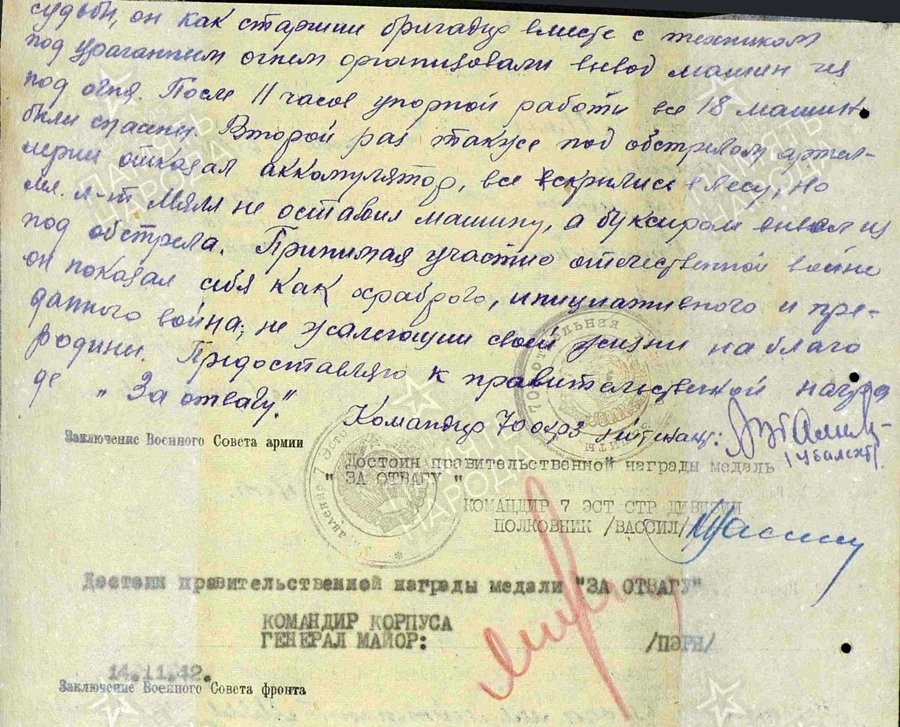 судьбы, он как старший бригадир вместе с техником
под ураганным огнем организовали вывод машин из
под огня. После 11 часов упорной работы все 18 машин
были спасены. Второй раз также под обстрелом артил-
лерии отказал аккомулятор, все скрылись в лесу, но
мл. л-т Мялл не оставил машину, а буксиром вывел из
под обстрела. Принимая участие отечественной войне
он показал себя как храброго, инициативного и пре-
данного война, не жалеющий своей жизни на благо
родины. Предоставляю к правительственной награ
де "За отвагу."
Командир 70
Заключение Военного Совета армии
Достоин правительственной награды медаль
" ЗА ОТВАГУ "
КОМАНДИР 7 ЭСТ СТР ДИВИЗИИ
ПОЛКОВНИК /ВАССИЛ/
Достоин правительственной награды медали "ЗА ОТВАГУ"
КОМАНДИР КОРПУСА
ГЕНЕРАЛ МАЙОР: /ПЭРН/
14.11.42.
Заключение Военного Совета фронта
ПАМЯТЬ НАРОДА